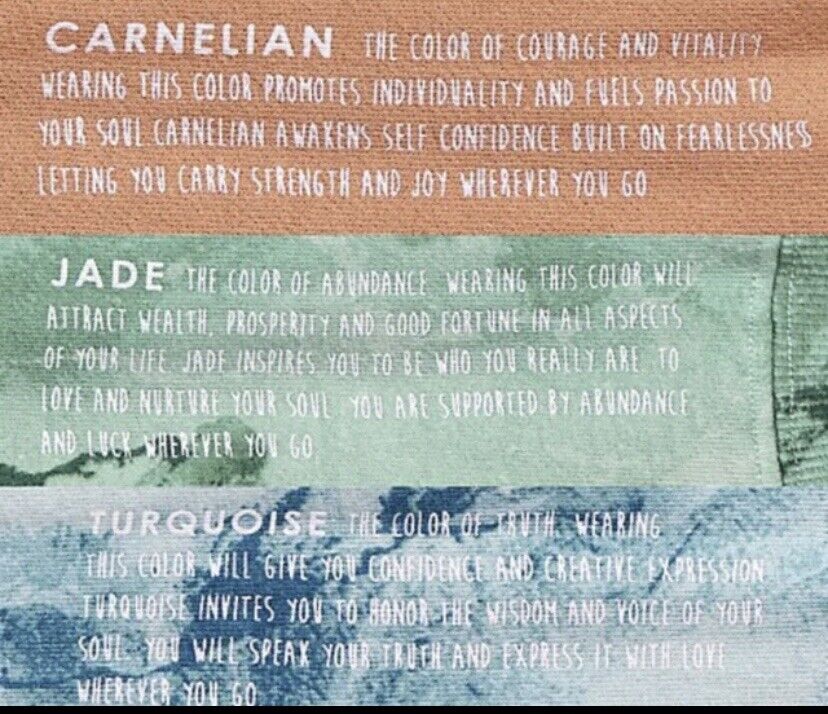 CARNELIAN THE COLOR OF COURAGE AND VITALITY
WEARING THIS COLOR PROMOTES INDIVIDUALITY AND FUELS PASSION TO
YOUR SOUL CARNELIAN AWAKENS SELF CONFIDENCE BUILT ON FEARLESSNESS
LETTING YOU CARRY STRENGTH AND JOY WHEREVER YOU GO
JADE THE COLOR OF ABUNDANCE WEARING THIS COLOR WILL
ATTRACT WEALTH, PROSPERITY AND GOOD FORTUNE IN ALL ASPECTS
OF YOUR LIFE. JADE INSPIRES YOU TO BE WHO YOU REALLY ARE. TO
LOVE AND NURTURE YOUR SOUL. YOU ARE SUPPORTED BY ABUNDANCE
AND LUCK WHEREVER YOU GO.
TURQUOISE THE COLOR OF TRUTH. WEARING
THIS COLOR WILL GIVE YOU CONFIDENCE AND CREATIVE EXPRESSION
TURQUOISE INVITES YOU TO HONOR THE WISDOM AND VOICE OF YOUR
SOUL. YOU WILL SPEAK YOUR TRUTH AND EXPRESS IT WITH LOVE
WHEREVER YOU GO